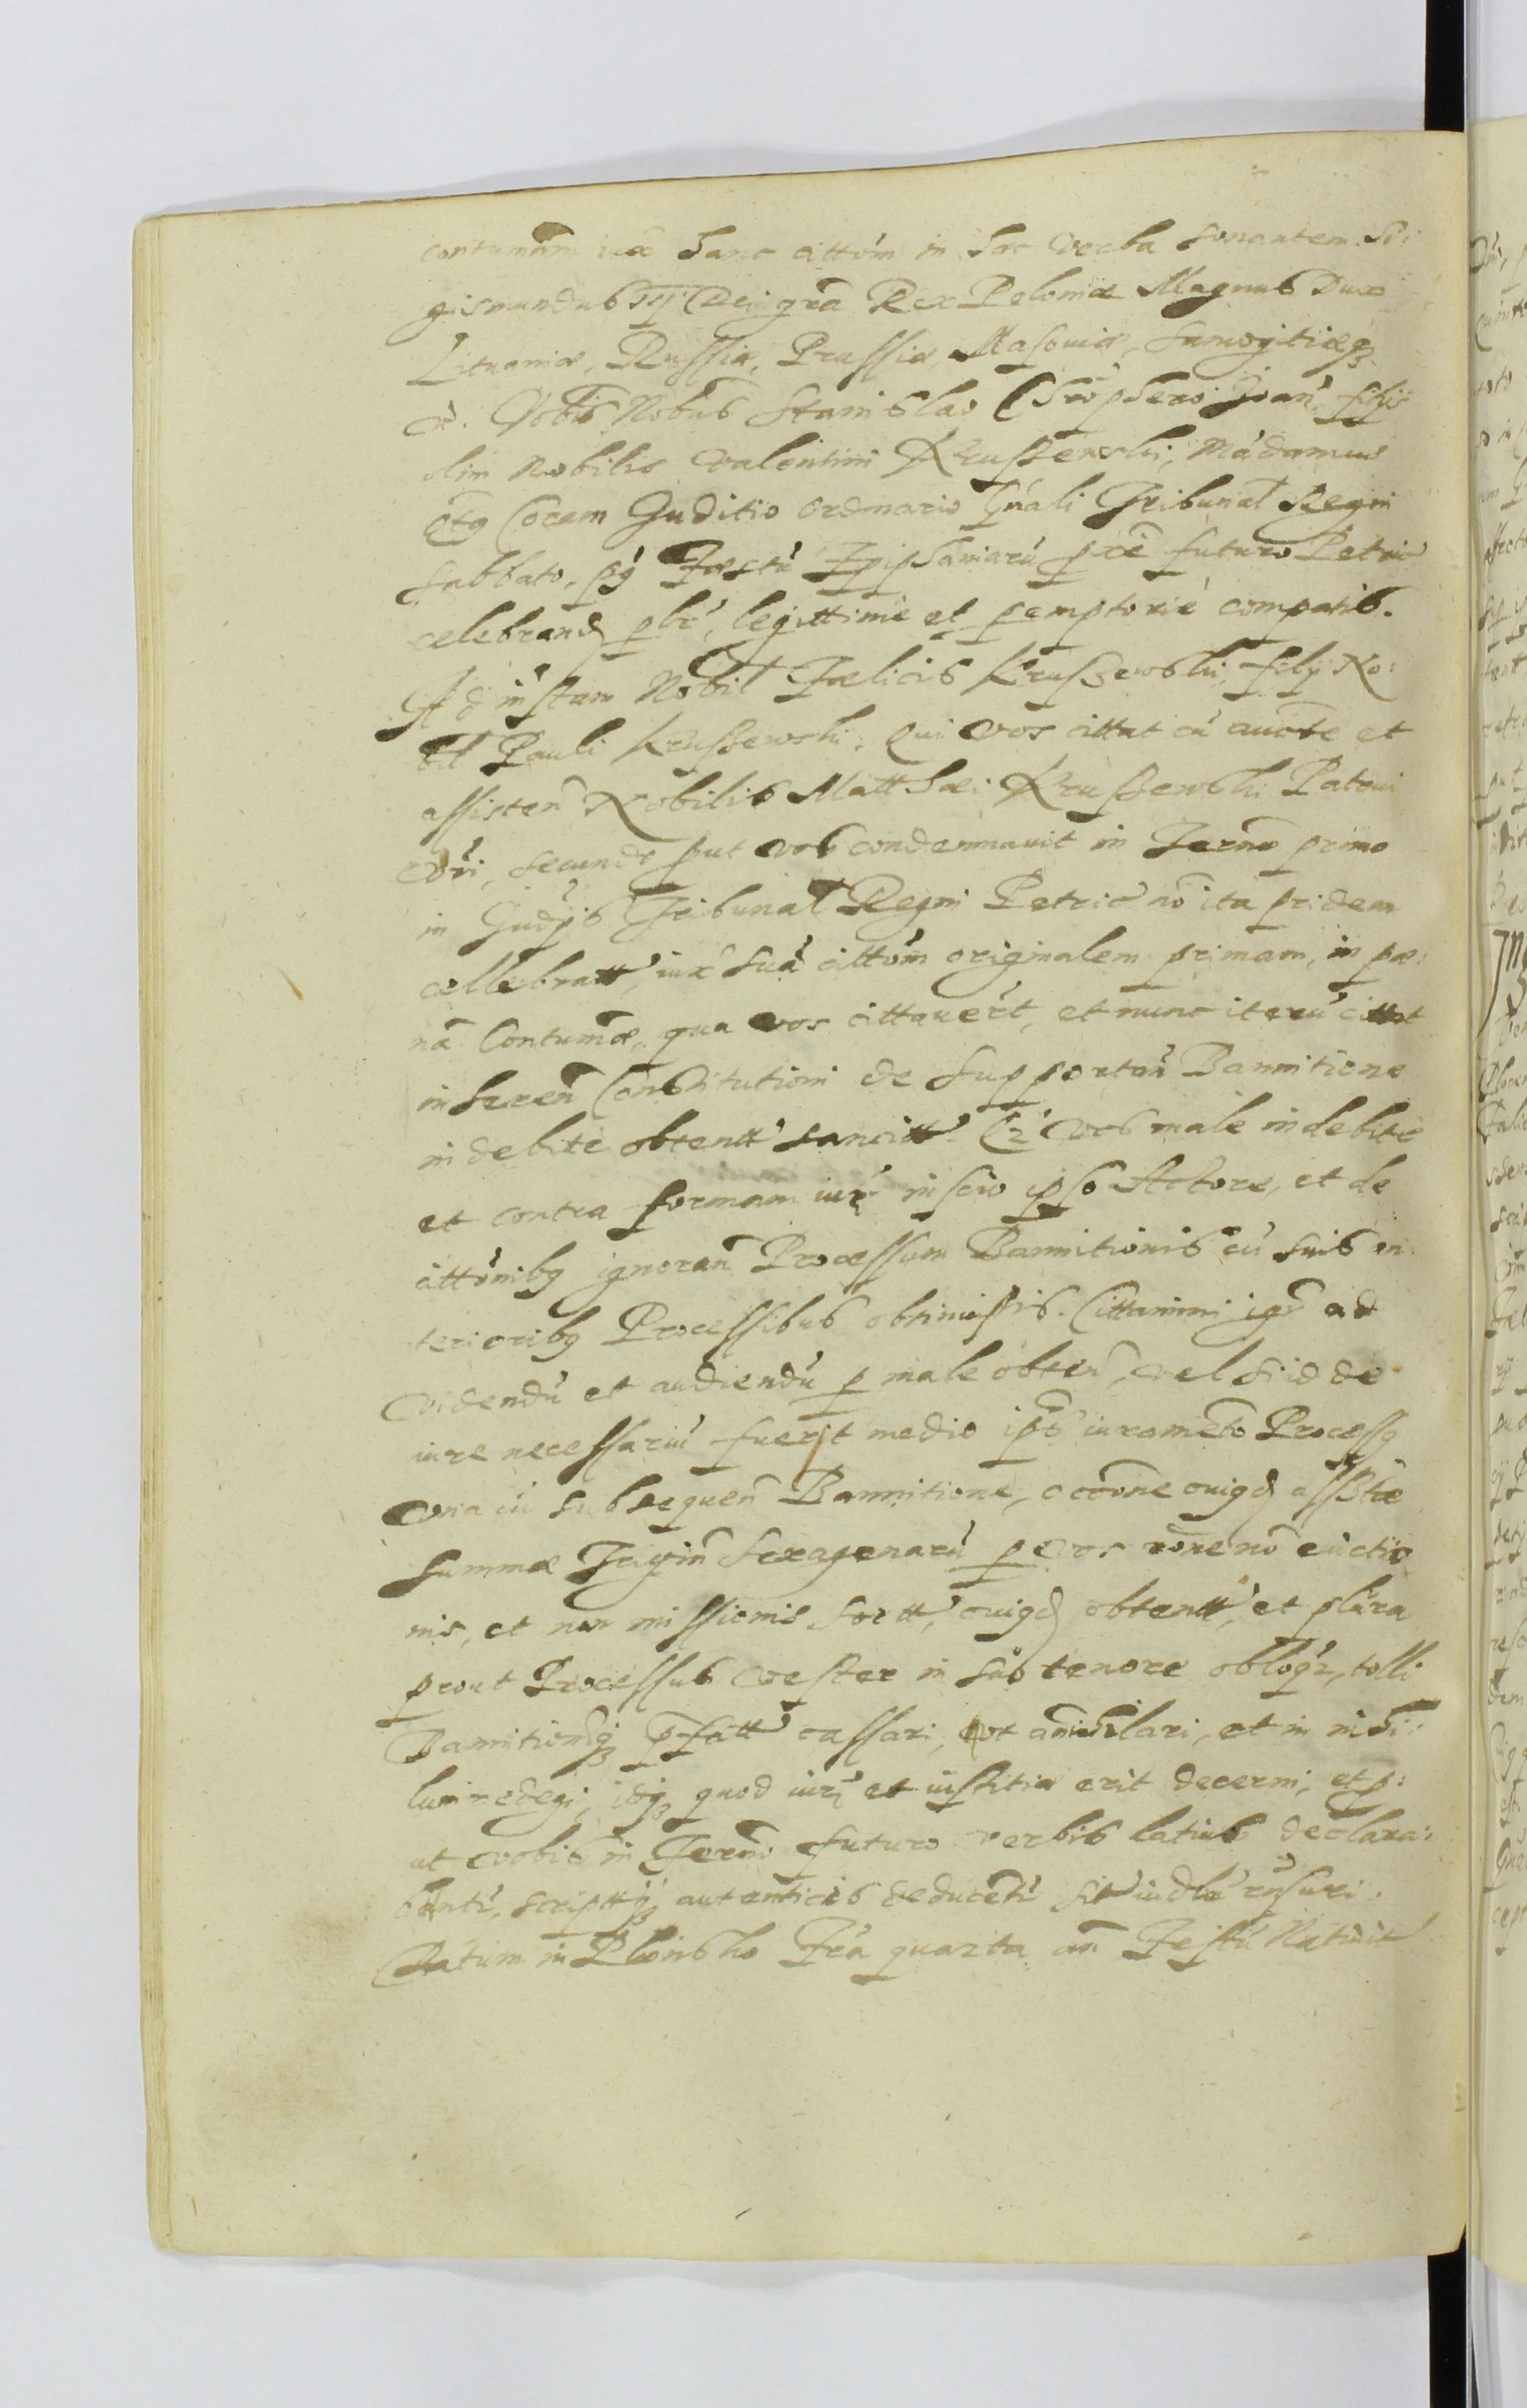 contumām iux̄ hanc cittōm in hac verba sonantem Si:
gismundus IIJ Dei grā Rex Poloniæ Magnus Dux
Lituaniæ, Russiæ, Prussiæ, Masouiæ, Samogitiæq3
Vobis Nobus Stanislao Chrōphero Joan̄ filijs
olim Nobilis Valentini Krussewski, Mādamus
Coram Juditio ordinario Gn̄ali Tribunal̄ Regni
Sabbato, Fæstū Epiphaniarū futuro Petric
celebrand legittimè et pemptoriè compatis.
Ad instam Nobil̄ Fælicis Kruszewski, filij No:
bil̄ Pauli Krussewski, Qui vos cittat cū auctte et
assisten̄ Nobilis Matthæi Krussewski Patrui
Vr̄i, secundo put vos condemnauit in Termō primo
in Judijs Tribunal̄ Regni Petric nō ita pridem
cellebratt, iux̄ suā cittōm originalem primam, in pæ:
nā Contumæ, qua vos cittauert, et nunc iterū cittat
inhæren̄ Constitutioni de supportan̄ Bannitione
indebite obtentt sancitt. vos male indebite
et contra formam iur inscio ipso Actore, et de
cittōnibq ignoran̄ Processum Bannitionis cū suis an
terioribq Processibus obtinuistis. Cittamini igr ad
videndū et audiendū p male obten̄, vel si id de
iure necessariū fuerit medio ips iuramēto Processq
vna cū subsequen̄ Bannitione, occōne cuiqd assertæ
summæ Trigin̄ Sexagenarū p vos rōne nō euictio
nis, et non missionis fortt, cuiqd obtentt, et plura
prout Processus vester in suo tenore obloqr, tolli
Bannitionēq3 p̄fatt cassari, et annihilari, et in nihi:
lum redegi, idq3 quod iuri et iustitiæ erit decerni, et p:
ut vobis in Termō futuro verbis latius declara:
bunt, scripttq3 autenticis deducentr sit iudlr rn̄suri.
Datum in Plonsko Fēa quarta an̄ Festū Natiuit